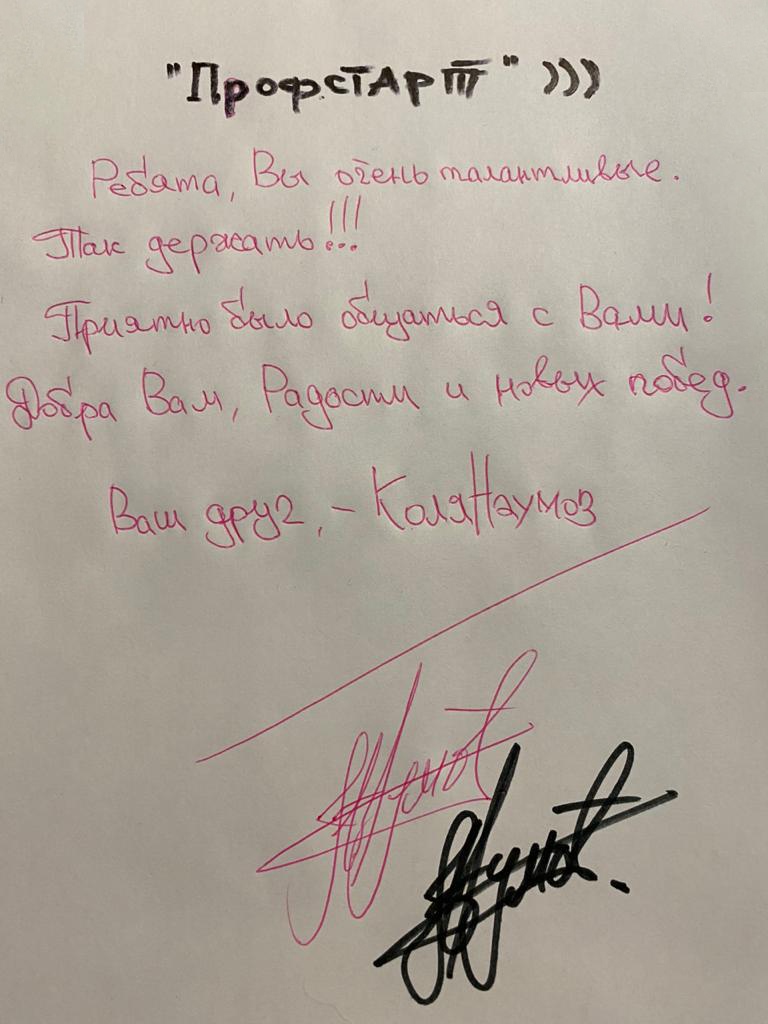 "ПрофСТАрТ" )))
Ребята, Вы очень талантливые.
Так держать!!!
Приятно было общаться с Вами!
Добра Вам, Радости и новых побед.
Ваш друг, – Коля Наумов